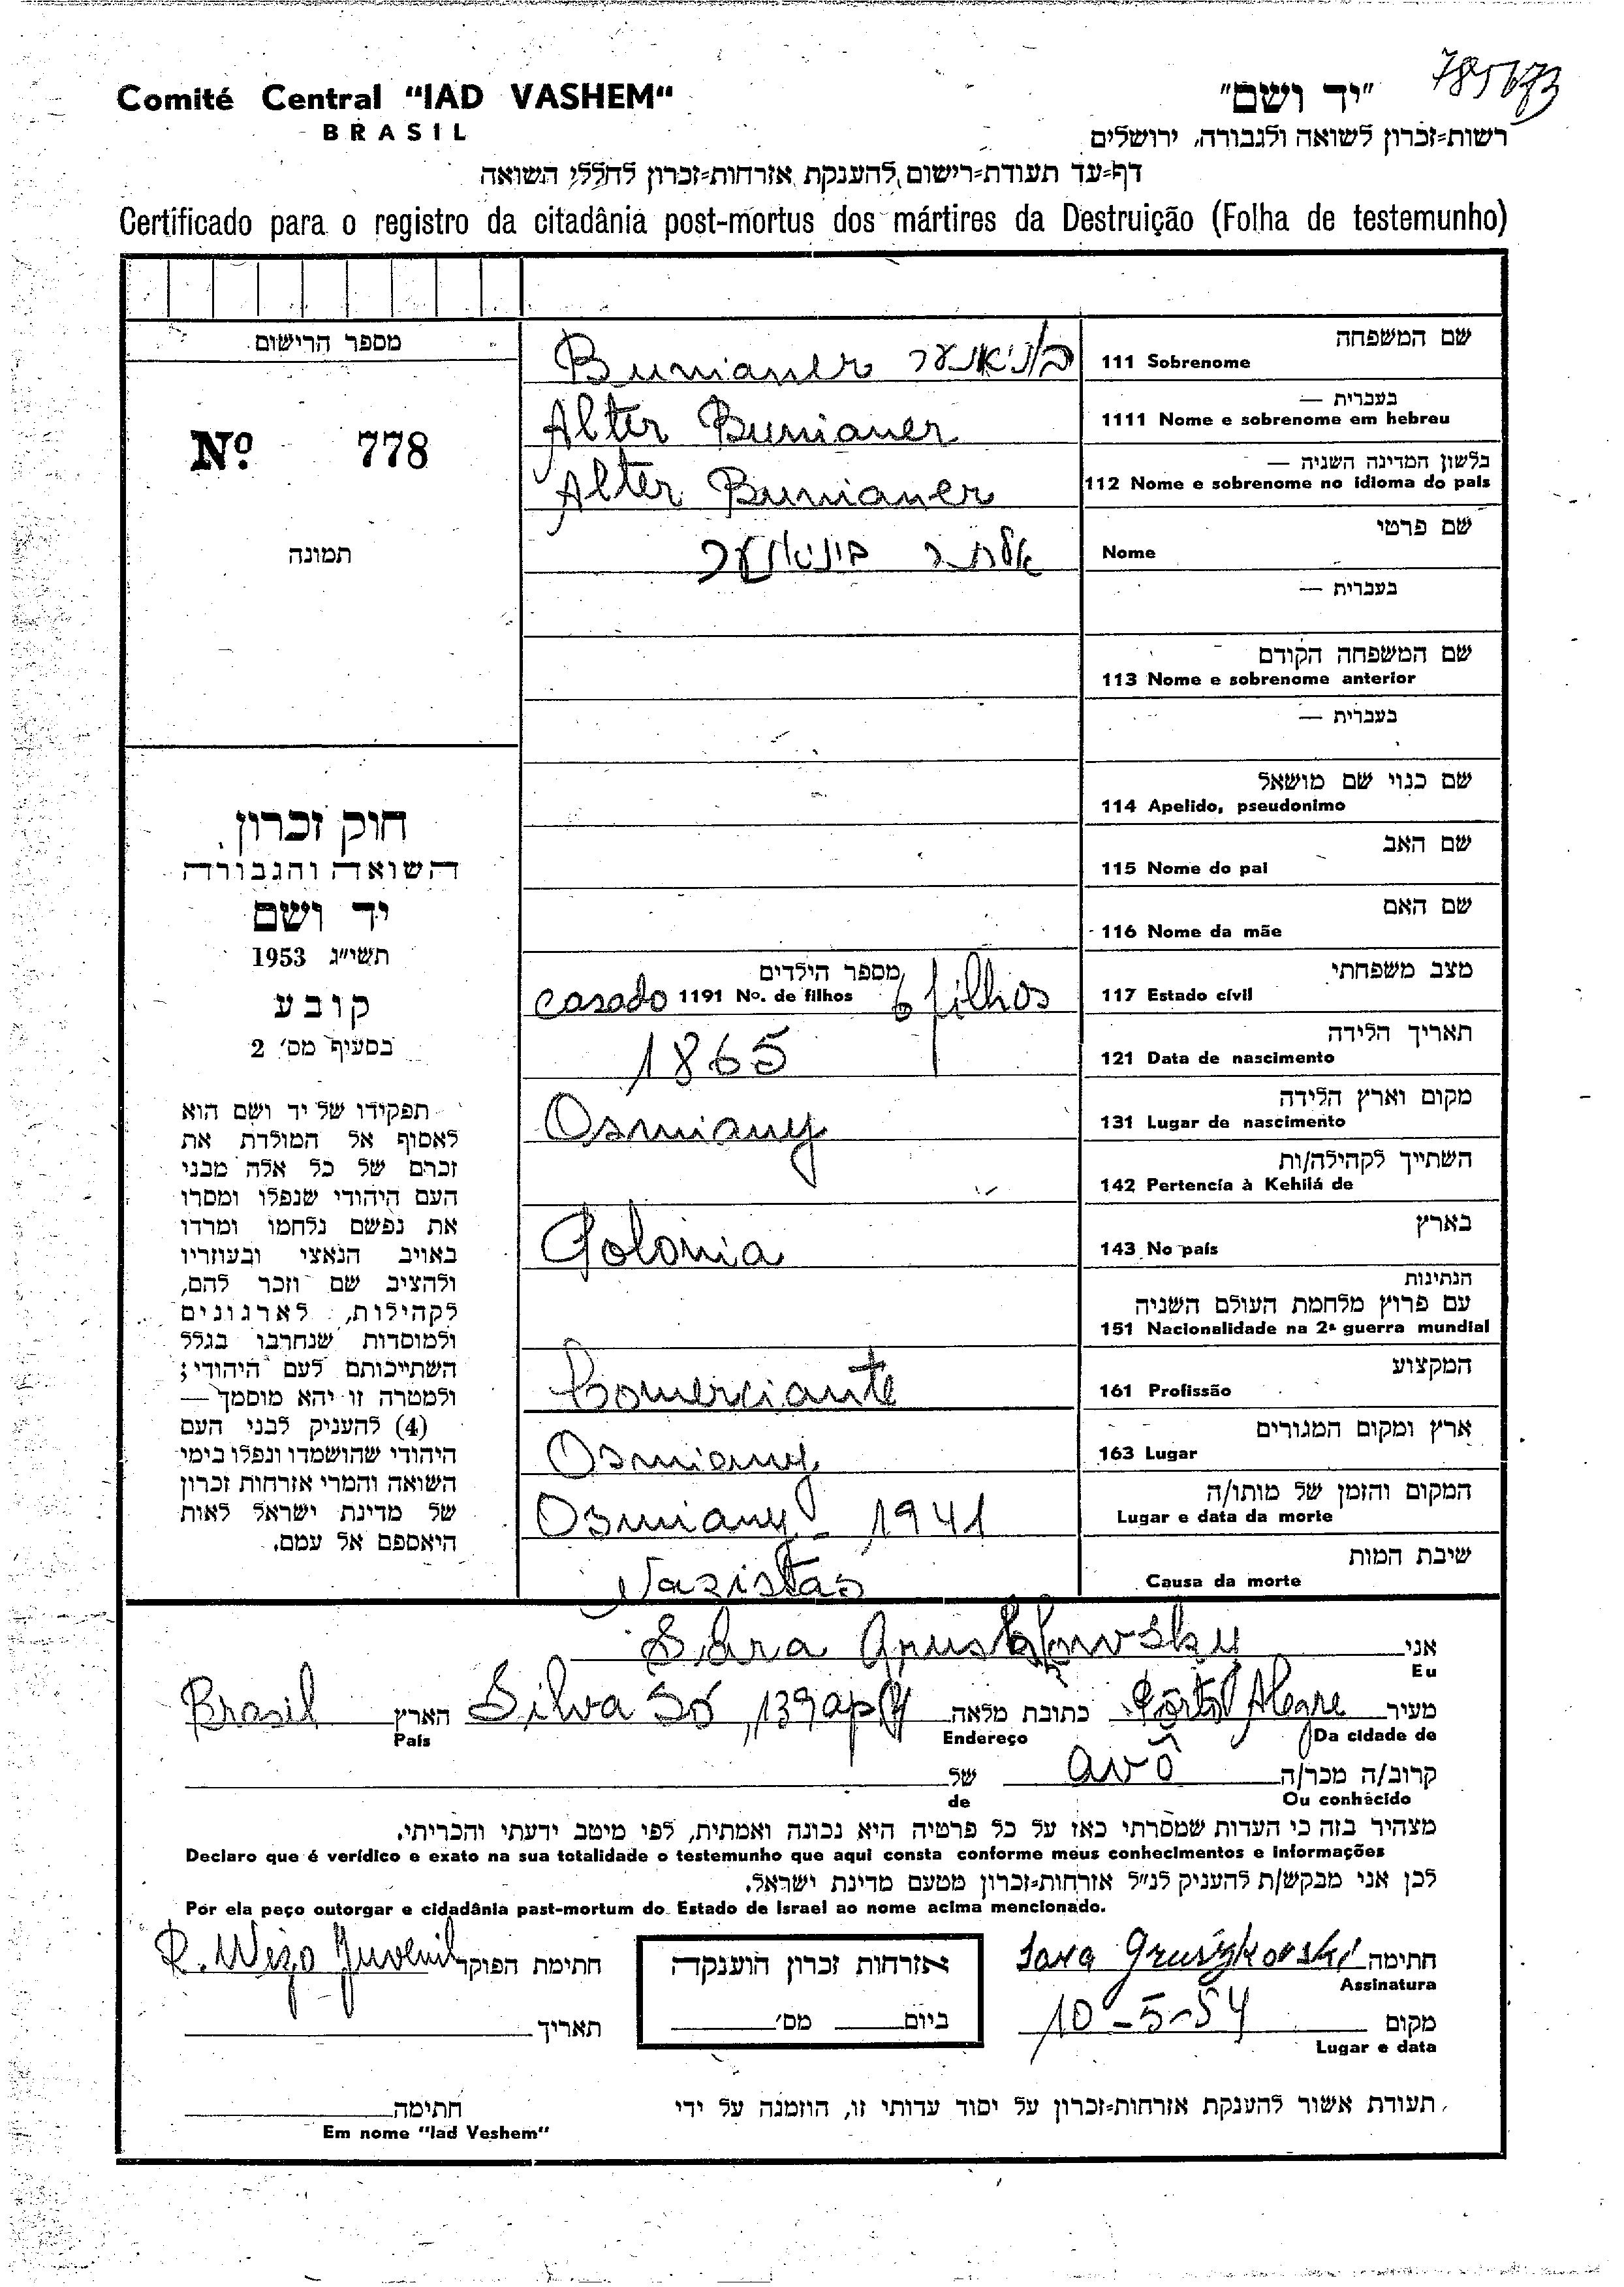 785673
Comité Central "IAD VASHEM"
BRASIL
"יד ושם"
רשות-זכרון לשואה ולגבורה, ירושלים
דף-עד תעודת-רישום להענקת אזרחות-זכרון לחללי השואה
Certificado para o registro da citadânia post-mortus dos mártires da Destruição (Folha de testemunho)
מספר הרישום
Nº. 778
תמונה
חוק זכרון
השואה והגבורה
יד ושם
תשי"ג 1953
קובע
בסעיף מס' 2
תפקידו של יד ושם הוא
לאסוף אל המולדת את
זכרם של כל אלה מבני
העם היהודי שנפלו ומסרו
את נפשם נלחמו ומרדו
באויב הנאצי ובעוזריו
ולהציב שם וזכר להם,
לקהילות, לארגונים
ולמוסדות שנחרבו בגלל
השתייכותם לעם היהודי;
ולמטרה זו יהא מוסמך —
(4) להעניק לבני העם
היהודי שהושמדו ונפלו בימי
השואה והמרי אזרחות זכרון
של מדינת ישראל לאות
היאספם אל עמם.
שם המשפחה
111 Sobrenome
Bunianer בוניאנער
בעברית —
1111 Nome e sobrenome em hebreu
Alter Bunianer
בלשון המדינה השניה —
112 Nome e sobrenome no idioma do país
Alter Bunianer
שם פרטי
Nome
אלתר בוניאנער
בעברית —
שם המשפחה הקודם
113 Nome e sobrenome anterior
בעברית —
שם כנוי שם מושאל
114 Apelido, pseudonimo
שם האב
115 Nome do pai
שם האם
116 Nome da mãe
מצב משפחתי
117 Estado cívil
casado
מספר הילדים
1191 Nº. de filhos 6 filhos
תאריך הלידה
121 Data de nascimento
1865
מקום וארץ הלידה
131 Lugar de nascimento
Osmiany
השתייך לקהילה/ות
142 Pertencía à Kehilá de
בארץ
143 No país
Polonia
הנתינות
עם פרוץ מלחמת העולם השניה
151 Nacionalidade na 2ª guerra mundial
המקצוע
161 Profissão
Comerciante
ארץ ומקום המגורים
163 Lugar
Osmiany
המקום והזמן של מותו/ה
Lugar e data da morte
Osmiany - 1941
שיבת המות
Causa da morte
Nazistas
אני Sara Gruszkowsky
Eu
מעיר Pôrto Alegre כתובת מלאה Silva Só, 139 ap הארץ Brasil
Da cidade de Endereço País
קרוב/ה מכר/ה avô של
Ou conhecido de
מצהיר בזה כי העדות שמסרתי כאז על כל פרטיה היא נכונה ואמתית, לפי מיטב ידעתי והכריתי.
Declaro que é verídico e exato na sua totalidade o testemunho que aqui consta conforme meus conhecimentos e informações
לכן אני מבקש/ת להעניק לנ"ל אזרחות-זכרון מטעם מדינת ישראל.
Por ela peço outorgar e cidadânia past-mortum do Estado de Israel ao nome acima mencionado.
חתימה Sara Gruszkowski
Assinatura
אזרחות זכרון הוענקה
ביום מס'
חתימת הפוקד R. Wizo Juvenil
מקום 10-5-54
Lugar e data
תאריך
תעודת אשור להענקת אזרחות-זכרון על יסוד עדותי זו, הוזמנה על ידי
חתימה
Em nome "Iad Veshem"